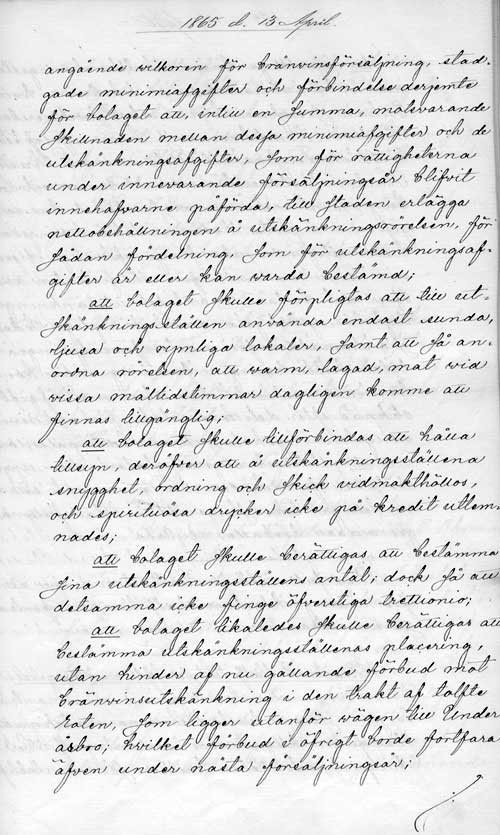 1865 d. 13 April.
angående wilkoren för bränvinsförsäljning, stad-
gade minimiafgifter och förbindelse derjemte
för bolaget att, intill en summa, motsvarande
skillnaden mellan dessa minimiafgifter och de
utskänkningsafgifter, som för rättigheterna
under innevarande försäljningsår blifvit
innehafvarne påförda, till staden erlägga
nettobehållningen å utskänkningsrörelsen, för
sådan fördelning, som för utskänkningsaf-
gifter är eller kan warda bestämd;
att bolaget skulle förpligtas att till ut-
skänkningsställen använda endast sunda,
ljusa och rymliga lokaler, samt att så an-
ordna rörelsen, att varm, lagad, mat vid
vissa måltidstimmar dagligen komme att
finnas tillgänglig;
att bolaget skulle tillförbindas att hålla
tillsyn, deröfver att å utskänkningsställena
snygghet, ordning och skick vidmakthöllos,
och spirituösa drycker icke på kredit utlem-
nades;
att bolaget skulle berättigas att bestämma
sina utskänkningsställens antal; dock så att
detsamma icke finge öfverstiga trettionio;
att bolaget likaledes skulle berättigas att
bestämma utskänkningsställenas placering,
utan hinder af nu gällande förbud mot
bränvinsutskänkning i den trakt af tolfte
roten, som ligger utanför wägen till Under
åsbro; hvilket förbud i öfrigt borde fortfara
äfven under nästa försäljningsår;